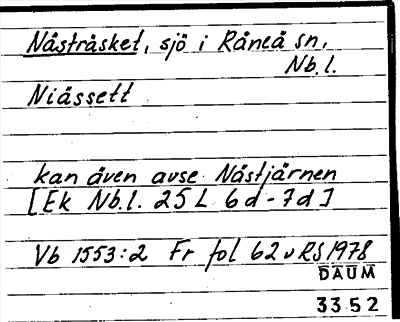 Nåsträsket, sjö i Råneå sn,
Nb.l.
Niåssett
kan även avse Nåstjärnen
[Ek Nb.l. 25 L 6d-7d]
Vb 1553:2 Fr fol 62 v RS 1978
DAUM
3352